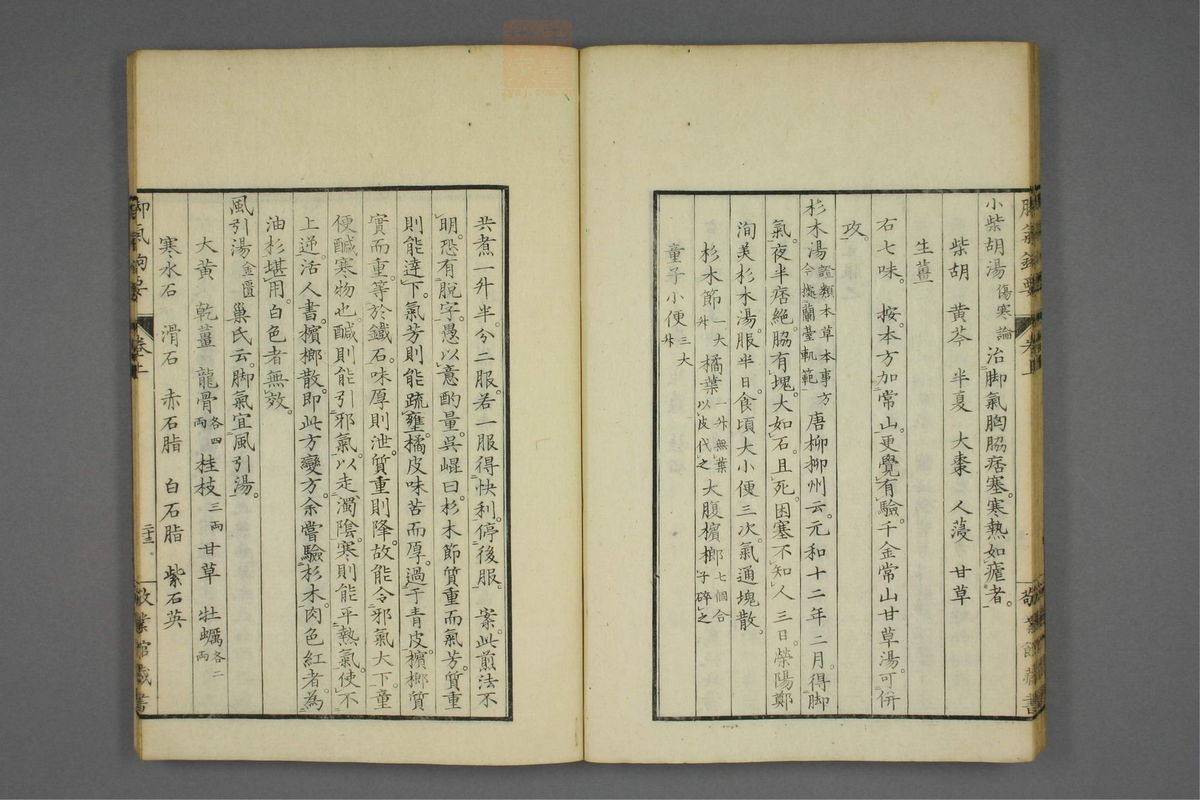 小柴胡湯傷寒論治脚氣胸脇痞塞。寒熱如瘧者。
柴胡 黄芩 半夏 大棗 人葠 甘草
生薑
右七味。 按。本方加常山。更覺有驗。千金常山甘草湯。可併
攻。
杉木湯證類本草本事方令據蘭臺軌範唐柳柳州云。元和十二年二月。得脚
氣。夜半痞絶。脇有塊。大如石。且死。困塞不知人三日。榮陽鄭
洵美杉木湯。服半日。食頃大小便三次。氣通塊散。
杉木節一大升 橘葉一升無葉以皮代之 大腹檳榔七個合子碎之
童子小便三大升
共煮一升半。分二服。若一服得快利。停後服。 案。此煎法不
明。恐有脱字。愚以意酌量。吳崐曰。杉木節質重而氣芳。質重
則能達下。氣芳則能疏壅。橘皮味苦而厚。過于青皮。檳榔質
實而重。等於鐵石。味厚則泄。質重則降。故能令邪氣大下。童
便鹹寒物也。鹹則能引邪氣以走濁陰。寒則能平熱氣。使不
上逆。活人書。檳榔散。即此方變方。余嘗驗杉木。肉色紅者。為
油杉堪用。白色者無效。
風引湯金匱 巢氏云。脚氣宜風引湯。
大黄 乾薑 龍骨各四兩 桂枝三兩 甘草 牡蠣各二兩
寒水石 滑石 赤石脂 白石脂 紫石英
卷上
二十三